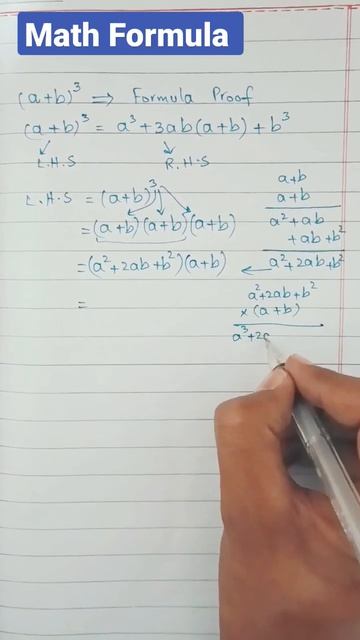 Math Formula
(a+b)³ ⇒ Formula Proof
(a+b)³ = a³+3ab(a+b)+b³
L.H.S R.H.S
L.H.S = (a+b)³
= (a+b)(a+b)(a+b)
= (a²+2ab+b²)(a+b)
=
a+b
a+b
a²+ab
+ab+b²
a²+2ab+b²
a²+2ab+b²
×(a+b)
a³+2a